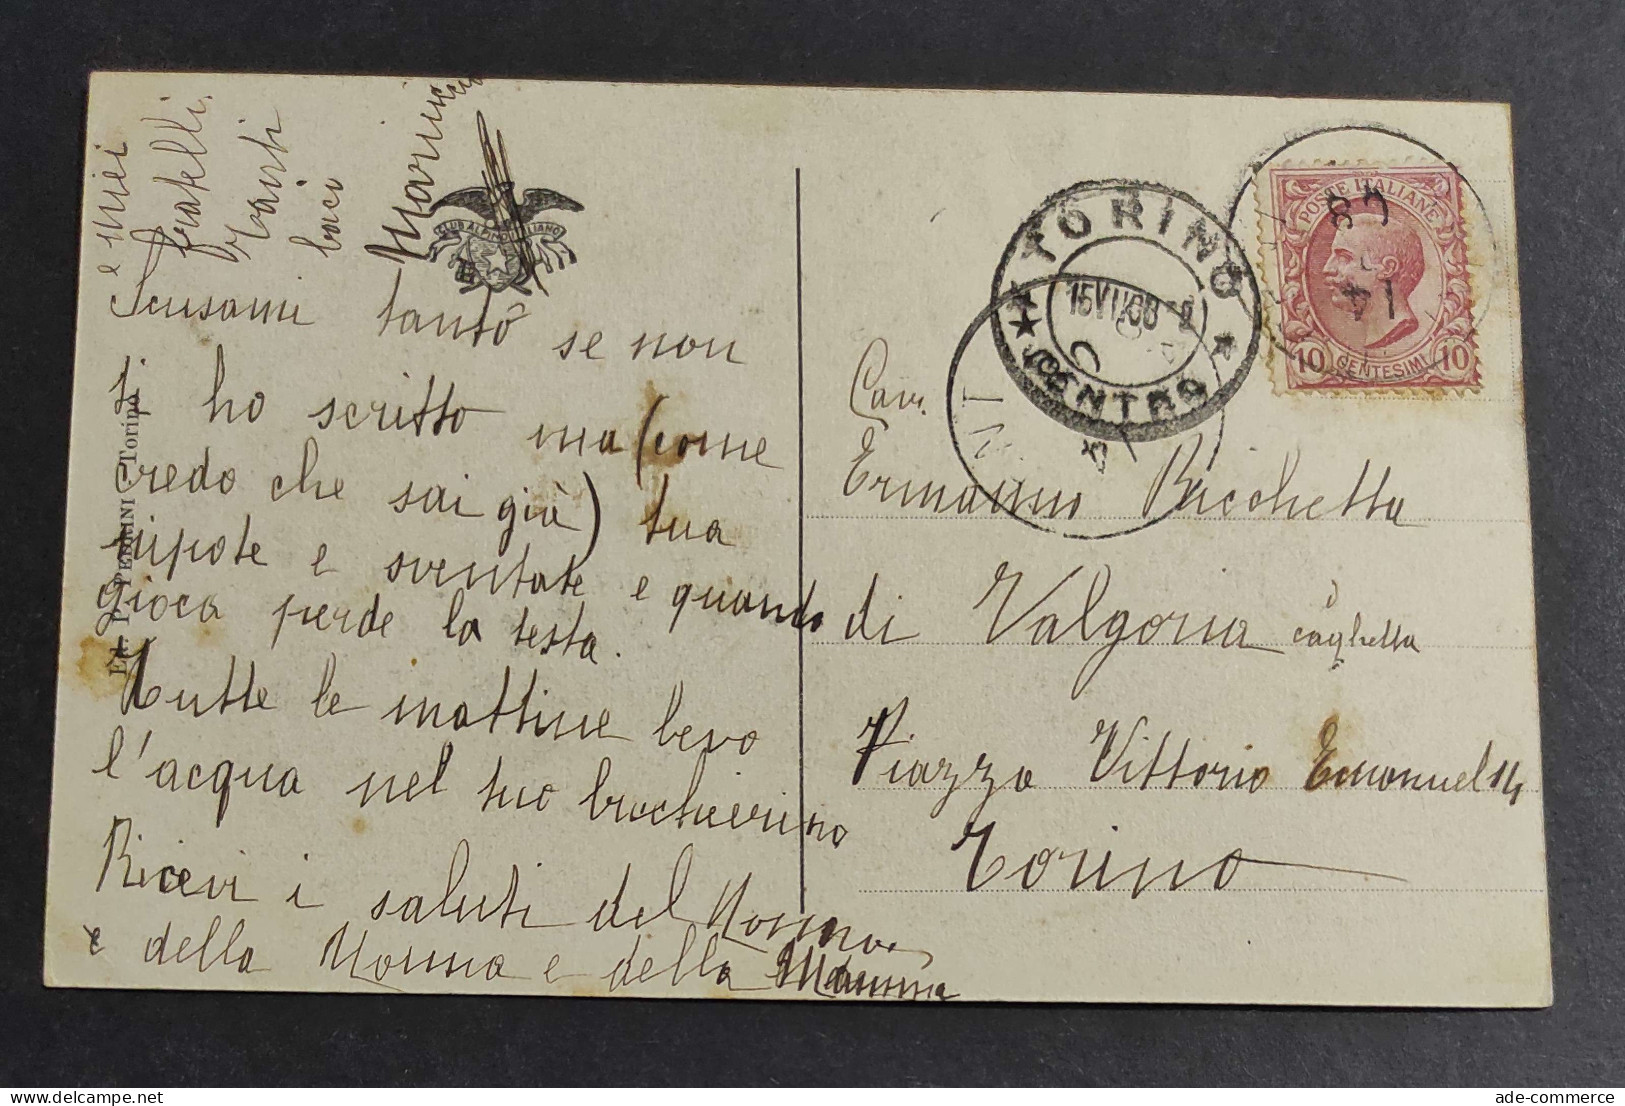 Scusami tanto se non
ti ho scritto ma (come
credo che sai già) tua
nipote e sventate e quando
gioca perde la testa.
Tutte le mattine bevo
l'acqua nel tuo bicchierino
Ricevi i saluti del Nonno
e della Nonna e della Mamma
e miei
fratelli.
Tanti
baci
CLUB ALPINO ITALIANO
Torino
TORINO
CENTRO
POSTE ITALIANE
10 CENTESIMI 10
Cav.
Ermanno Ricchetta
di Valgoria
Piazza Vittorio Emanuel 14
Torino
ade-commerce